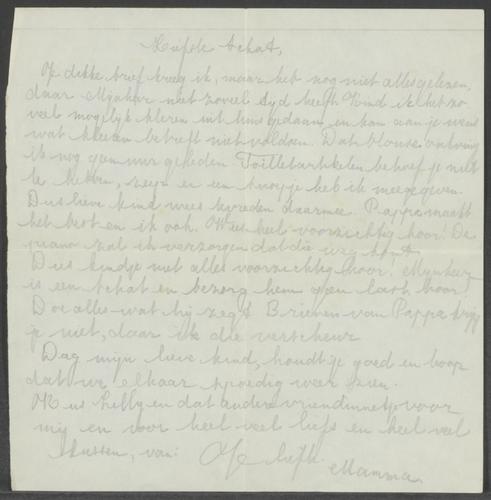 Liefste schat,
Je dikke brief kreeg ik, maar het nog niet alles gelezen,
daar Mijnheer niet zooveel tyd heeft. Kind ik het zo
veel mogelijk kleren uit huis gedaan en kan aan je wens
wat kleren betreft niet voldoen. Dat blouse ontving
ik nog geen uur geleden Toilletartikelen behoef je niet
te hebben, zeep en een knopje heb ik meegegeven.
Dus lieve kind wees tevreden daarmee. Pappa maakt
het best en ik ook. Wees heel voorzichtig hoor! De
piano zal ik verzorgen dat die weg komt.
Dus kindje met alles voorzichtig hoor, Mijnheer
is een schat en bezorg hem geen last, hoor!
Doe alles wat hij zegt. Brieven van Pappa krijg
je niet, daar ik die verscheur
Dag mijn lieve kind, houdt je goed en hoop
dat we elkaar spoedig weer zien.
Kus en dat andere vriendinnetje voor
mij en voor heel veel liefs en heel veel
kussen, van: Je liefh.
Mamma.